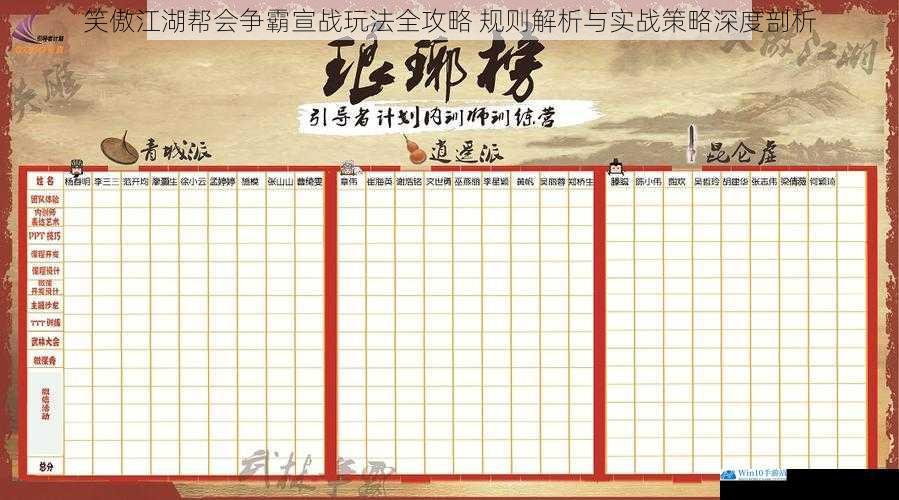 笑傲江湖帮会争霸宣战玩法全攻略 规则解析与实战策略深度剖析
琅琊榜
引导者计划内训师训练营
青城派
逍遥派
昆仑虚
姓名 杨春明 李三三 范开均 徐小云 孟婷婷 张山山 曹绮雯 章伟 崔海英 谢浩铭 文世勇 巫燕丽 李星颖 黄帆 吴丽蓉 郑桥生 陈小伟 吴哲玲 胡建华 张志伟 梁倩薇 何颖琦
团队体验
内训师
表达艺术
PPT 技巧
课程开发
课程设计
微课
开发设计
主题沙龙
TTT训练
武林大会
微课秀
总分
武林争霸
Win10手游站